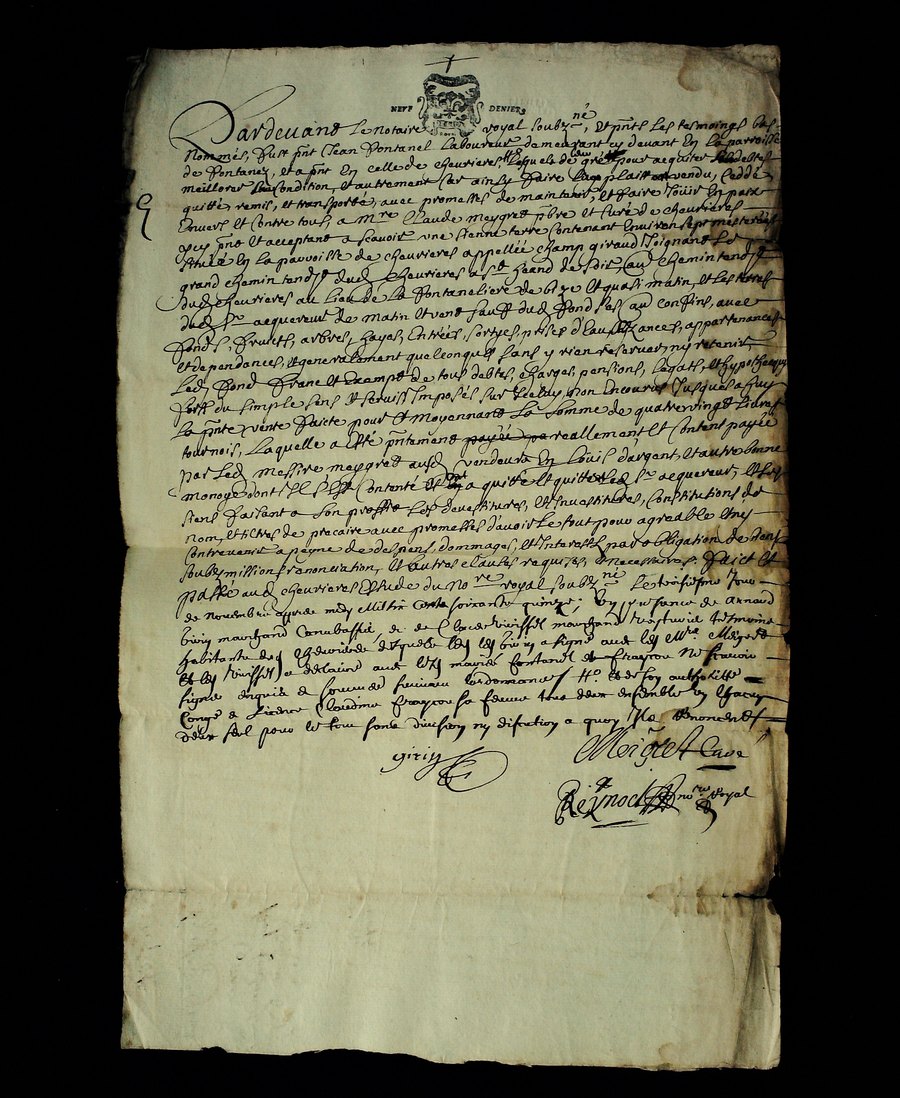 NEFF DENIERS
Pardevant le notaire royal soubz.né, et pnts les tesmoings bas
nommés, fust pnt Jean fontanel laboureur demeurant cy devant en la parroisse
de fontanes, et a pnt en celle de chevrieres lequel de gré pour acquiter ses debtes
meillorer sa condition, et autrement car ainsy faire luy plait a vendu, ceddé
quitté remis, et transporté, avec promesses de maintenir, et faire jouir en paix
envers et contre tous, a mre Claude meygret pbre et curé de chevrieres
icy pnt et acceptant a scavoir une sienne terre contenant environ sept mesterées
située en la parroisse de chevrieres appellée champ giraud joignant le
grand chemin tendt dud chevrieres a st heand de soir, au chemin tendt
dud chevrieres au lieu de la fontaneliere de bize et quasi matin, et les terres
dud sr acquereur de matin et vent sauff dud fond ses au confins, avec
fonds, fruicts, arbres, hayes, entrées, sortyes, prises d'eau, aizances, appartenances
et dependances, et generalement quelconques sans y rien reserver, ny retenir,
led fond franc et exampt de tous debtes, charges, pensions, legats, et hypotheques
fors du simple sens et servis imposés sur iceluy, non encourus jusques a huy
la pnte vente faicte pour et moyennant la somme de quatre vingt livres
tournois, laquelle a esté pntement payée pa reallement et content payée
par led messire meygret aud vendeur en louis d'argent, et autre bonne
monoye dont il s'est contenté et en a quitté et quitte led sr acquereur, et les
siens faisant a son proffit les devestitures, et investitures, constitutions de
nom, et tiltres de precaire avec promesses d'avoir le tout pour agreable et n'y
contrevenir a peyne de despens, dommages, et interests par obligation de biens
soubzmission, renonciation, et autres clauses requises, et necessaires. faict et
passé aud chevrieres estude du nore royal soubz.né le jour
de novembre apres midy mil six cents soixante quinze; en presence de arnaud
giriny marchand et de marchand tesmoins
habitants de led giriny a signé avec led mre Meigret
et led declairé avec led mariés fontanel et ne scavoir
signer enquis et lordonnance et de son authorité
congé et licence Claudine sa femme tous deux ensemble
deux seul pour le tout sans division ny discution a quoy ils renoncent
giriny
Meigret Curé
Reynod nore Royal